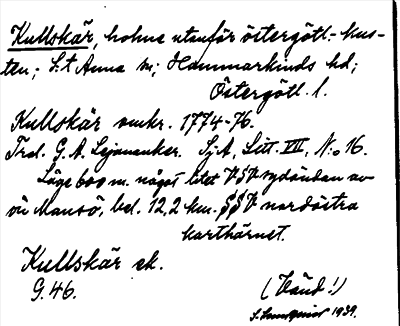 Kullskär, holme utanför östergötl.-kus-
ten; S:t Anna sn; Hammarkinds hd;
Östergötl. l.
Kullskär omkr. 1774-76.
Trol. G. A. Lejonanker. SjA, Litt. VIII, No 16.
Läge 600 m. något litet V§V sydändan av
ön Mansö, bel. 12,2 km. §§V nordöstra
karthörnet.
Kullskär ek.
G. 46.
(Vänd!)
1939.